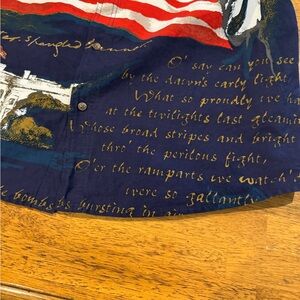 Star Spangled Banner
O' say can you see
by the dawn's early light
What so proudly we ha
at the twilights last gleamin
Whose broad stripes and bright
thro' the perilous fight,
O'er the ramparts we watch'd
were so gallantly
bombs bursting in air